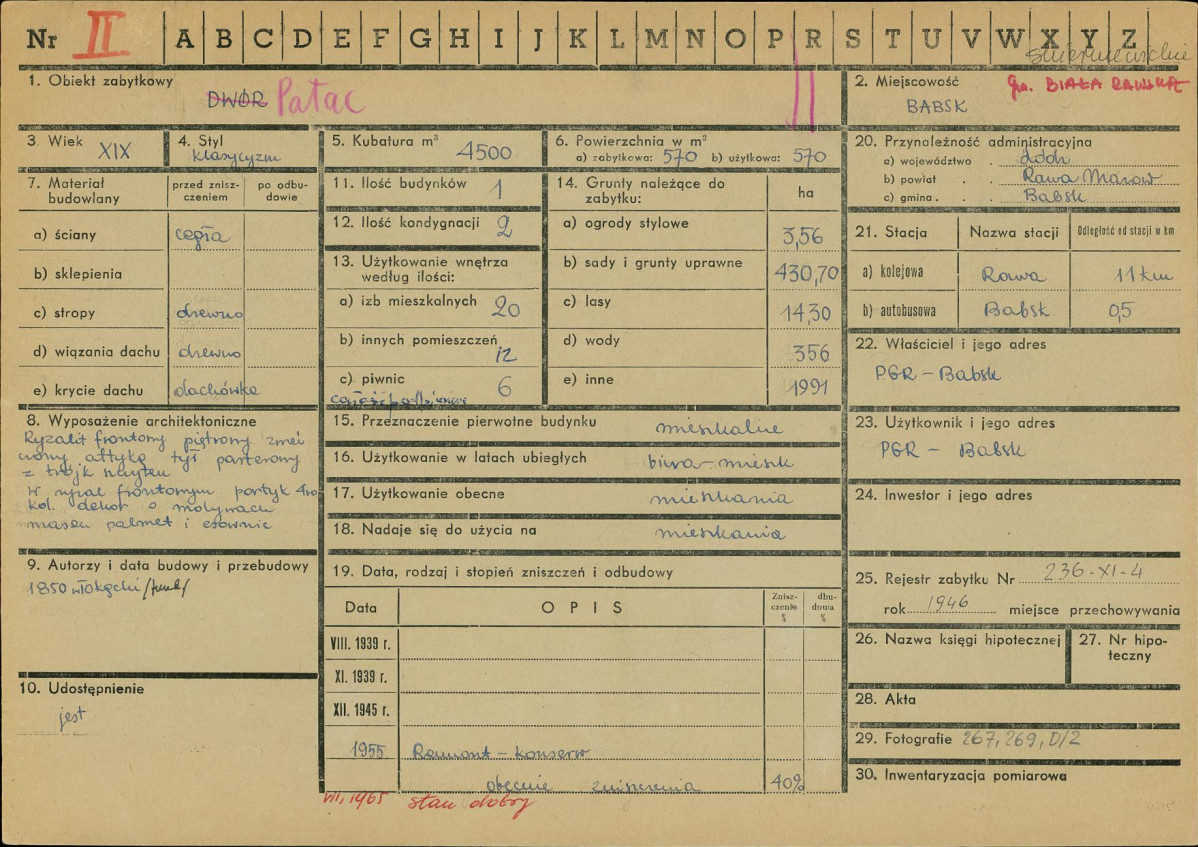 Nr II A B C D E F G H I J K L M N O P R S T U V W X Y Z
skierniewickie
1. Obiekt zabytkowy
DWÓR Pałac
2. Miejscowość gm. BIAŁA RAWSKA
BABSK
3. Wiek XIX
4. Styl
klasycyzm
5. Kubatura m³ 4500
6. Powierzchnia w m²
a) zabytkowa: 570 b) użytkowa: 570
7. Materiał budowlany
przed zniszczeniem
po odbudowie
a) ściany cegła
b) sklepienia
c) stropy drewno
d) wiązania dachu drewno
e) krycie dachu dachówka
8. Wyposażenie architektoniczne
Ryzalit frontowy piętrowy
attyką tył parterowy
z trójk
W frontowym portyk 4ro
kol. dekor o motywach
palmet i esownic
9. Autorzy i data budowy i przebudowy
1850
10. Udostępnienie
jest
11. Ilość budynków 1
12. Ilość kondygnacji 2
13. Użytkowanie wnętrza
według ilości:
a) izb mieszkalnych 20
b) innych pomieszczeń
12
c) piwnic 6
14. Grunty należące do
zabytku:
ha
a) ogrody stylowe 3,56
b) sady i grunty uprawne 430,70
c) lasy 14,30
d) wody 356
e) inne 1991
15. Przeznaczenie pierwotne budynku mieszkalne
16. Użytkowanie w latach ubiegłych biura-mieszk
17. Użytkowanie obecne mieszkania
18. Nadaje się do użycia na mieszkania
19. Data, rodzaj i stopień zniszczeń i odbudowy
Data OPIS Zniszczenie % dbudowa %
VIII. 1939 r.
XI. 1939 r.
XII. 1945 r.
1955 Remont-konserw
obecnie zniszczenia 40%
VII, 1965 stan dobry
20. Przynależność administracyjna
a) województwo . łódzk
b) powiat . . Rawa Mazow
c) gmina . . Babsk
21. Stacja Nazwa stacji Odległość od stacji w km
a) kolejowa Rawa 11 km
b) autobusowa Babsk 0,5
22. Właściciel i jego adres
PGR - Babsk
23. Użytkownik i jego adres
PGR - Babsk
24. Inwestor i jego adres
25. Rejestr zabytku Nr 236-XI-4
rok 1946 miejsce przechowywania
26. Nazwa księgi hipotecznej
27. Nr hipoteczny
28. Akta
29. Fotografie 267, 269, D/2
30. Inwentaryzacja pomiarowa